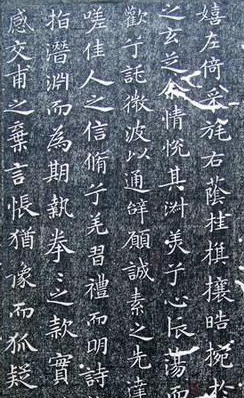 嬉左倚采旄右蔭桂旗攘皓捥於
之玄芝余情悅其淑美兮心振蕩而
歡兮託微波以通辝願誠素之先達
嗟佳人之信脩兮羌習禮而明詩
指潛淵而為期執拳〻之款實
感交甫之棄言悵猶豫而狐疑